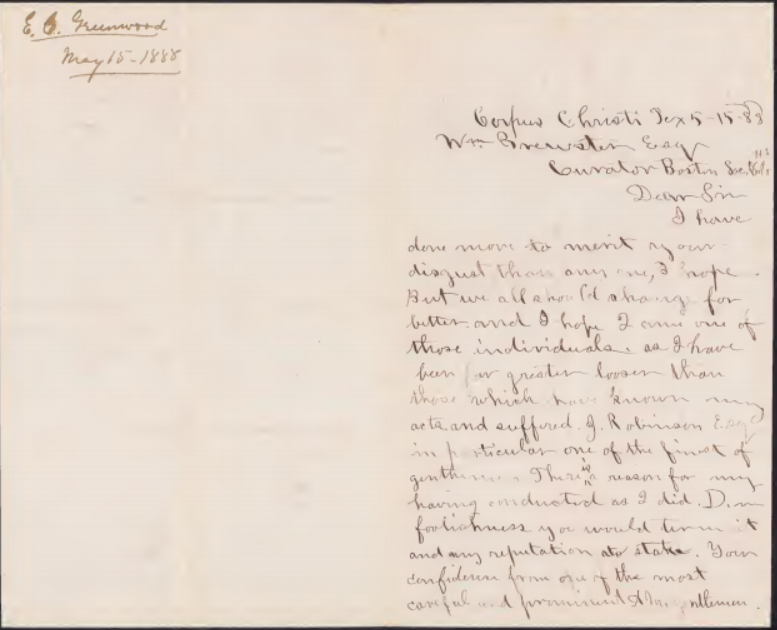 E. O. Greenwood
May 15-1888
Corpus Christi Tex 5-15-88
Wm Brewster Esq
Curator Boston Soc. N.H.
Dear Sir
I have
done more to merit your
disgust than any one, I hope.
But we all should change for
better. and I hope I am one of
those individuals. as I have
been far greater looser than
those which have known my
acts. and suffered. J. Robinson Esq
in particular one of the finest of
gentlemen. There is a reason for my
having conducted as I did. D.m
foolishness you would term it
and my reputation at stake. Your
confidence from one of the most
careful and prominent gentlemen.